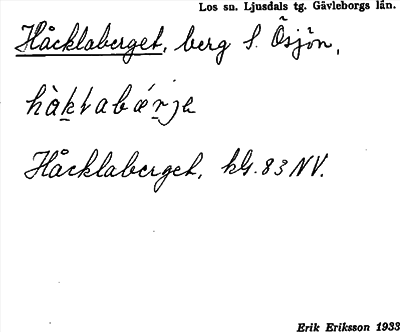 Los sn. Ljusdals tg. Gävleborgs län.
Håcklaberget, berg S. Ösjön,
Håcklaberget, kbl. 83 NV.
Erik Eriksson 1933